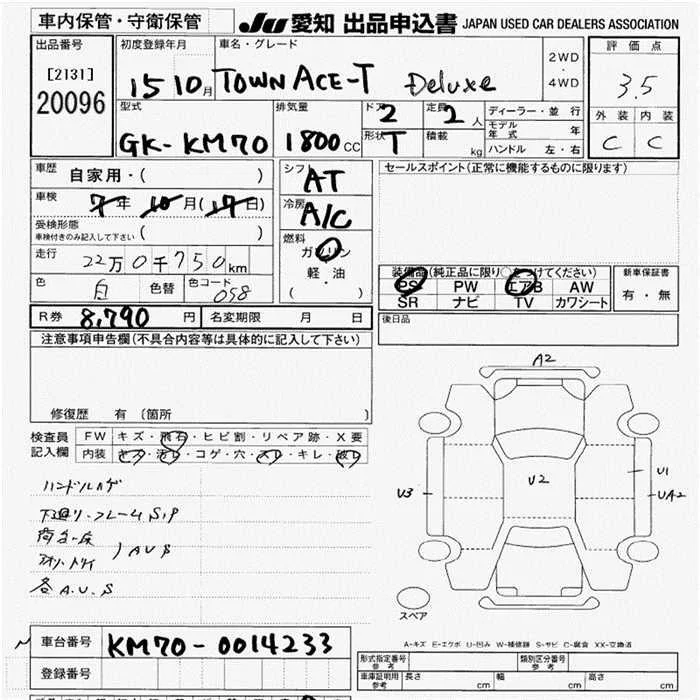 車内保管・守衛保管 JU 愛知 出品申込書 JAPAN USED CAR DEALERS ASSOCIATION
出品番号
[2131]
20096
初度登録年月
15 10月
車名・グレード
TOWN ACE-T Deluxe
2WD
・
4WD
評価点
3.5
外装 内装
C C
型式
GK-KM70
排気量
1800 CC
ドア
2
形状
T
定員
2人
積載
kg
ディーラー・並行
モデル年式 年
ハンドル 左・右
車歴
自家用・( )
車検
7年 10月(17日)
受検形態
車検付きのみ記入して下さい ( )
走行
22万0千750km
色
白
色替
色コード
058
シフト
AT
冷房
A/C
燃料
ガソリン
軽・油
( )
セールスポイント(正常に機能するものに限ります)
装備品(純正品に限り○をつけてください)
PS PW エアB AW
SR ナビ TV カワシート
新車保証書
有・無
R券 8,790 円 名変期限 月 日
後日品
注意事項申告欄(不具合内容等は具体的に記入して下さい)
修復歴 有 〔箇所 〕
検査員
記入欄
FW キズ・飛石・ヒビ割・リペア跡・X要
内装 キズ・汚レ・コゲ・穴・スレ・キレ・破レ
ハンドルハゲ
下廻り・フレームS,P
荷台・床
AUS
各A.U.S
A2
U2
U3
U1
UA2
スペア
A-キズ E-エクボ U-凹み W-補修跡 S-サビ C-腐食 XX-交換済
車台番号 KM70-0014233
登録番号
形式指定番号
参考
類別区分番号
参考
車庫証明用
参考
長さ cm 幅 cm 高さ cm